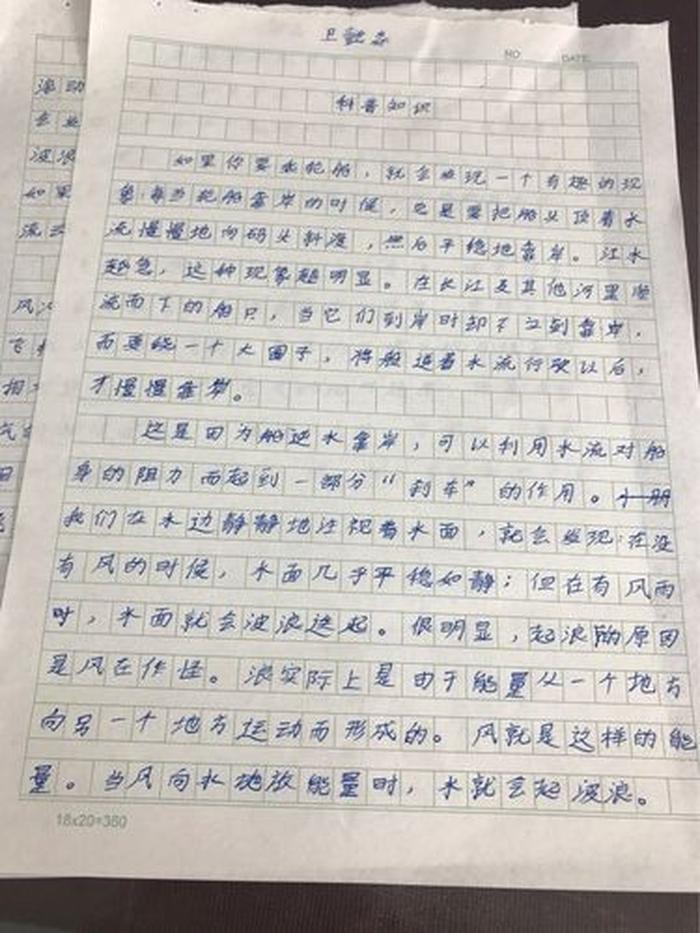 NO.
DATE.
科普知识
如果你要乘轮船，就会发现一个有趣的现
象每当轮船靠岸的时候，总是要把船头顶着水
流慢慢地向码头斜渡，然后平稳地靠岸。江水
越急，这种现象越明显。在长江及其他河里顺
流而下的船只，当它们到岸时却不立刻靠岸，
而要绕一个大圈子，将船逆着水流行驶以后，
才慢慢靠岸。
这是因为船逆水靠岸，可以利用水流对船
身的阻力而起到一部分“刹车”的作用。
我们在水边静静地注视着水面，就会发现：在没
有风的时候，水面几乎平稳如静；但在有风雨
时，水面就会波浪迭起。很明显，起浪的原因
是风在作怪。浪实际上是由于能量从一个地方
向另一个地方运动而形成的。风就是这样的能
量。当风向水地放能量时，水就会起波浪。
18x20=360
滚动
波浪
如果
风
飞
相